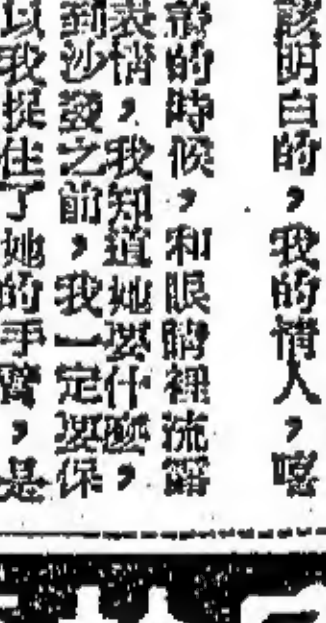 該明白的，我的情人，噁
的時候，和眼睛裡流露
表情，我知道她要什麼，
到沙發之前，我一定要保
以我捉住了她的手臂，是